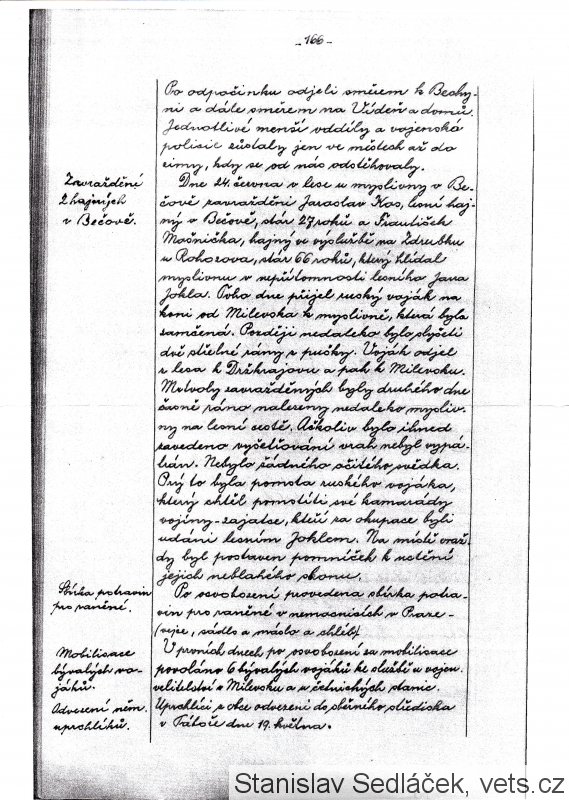 -166-
Po odpočinku odjeli směrem k Bechy-
ni a dále směrem na Vídeň a domů.
Jednotlivé menší oddíly a vojenská
policie zůstaly jen ve městech až do
zimy, kdy se od nás odstěhovaly.
Zavraždění
2 hajných
v Bečově.
Dne 24. června v lese u myslivny v Be-
čově zavražděni Jaroslav Kos, lesní haj-
ný v Bečově, stár 27 roků a František
Mošnička, hajný ve výslužbě na Zdrubku
u Rohozova, stár 66 roků, který hlídal
myslivnu v nepřítomnosti lesního Jana
Jokla. Toho dne přijel ruský voják na
koni od Milevska k myslivně, která byla
zamčená. Později nedaleko bylo slyšeti
dvě střelné rány z pušky. Voják odjel
z lesa k Držkrajovu a pak k Milevsku.
Mrtvoly zavražděných byly druhého dne
časně ráno nalezeny nedaleko mysliv-
ny na lesní cestě. Ačkoliv bylo ihned
zavedeno vyšetřování vrah nebyl vypá-
trán. Nebylo žádného očitého svědka.
Prý to byla pomsta ruského vojáka,
který chtěl pomstíti své kamarády
vojíny-zajatce, kteří za okupace byli
udáni lesním Joklem. Na místě vraž-
dy byl postaven pomníček k uctění
jejich neblahého skonu.
Sbírka potravin
pro raněné.
Po osvobození provedena sbírka potra-
vin pro raněné v nemocnicích v Praze-
(vejce, sádlo a máslo a chléb)
Mobilisace
bývalých vo-
jáků.
V prvních dnech po osvobození su mobilisace
povoláno 6 bývalých vojáků ke službě u vojen.
velitelství v Milevsku a u četnických stanic.
Odvezení něm.
uprchlíků.
Uprchlíci z obce odvezeni do sběrného střediska
v Táboře dne 19. května.
Stanislav Sedláček, vets.cz